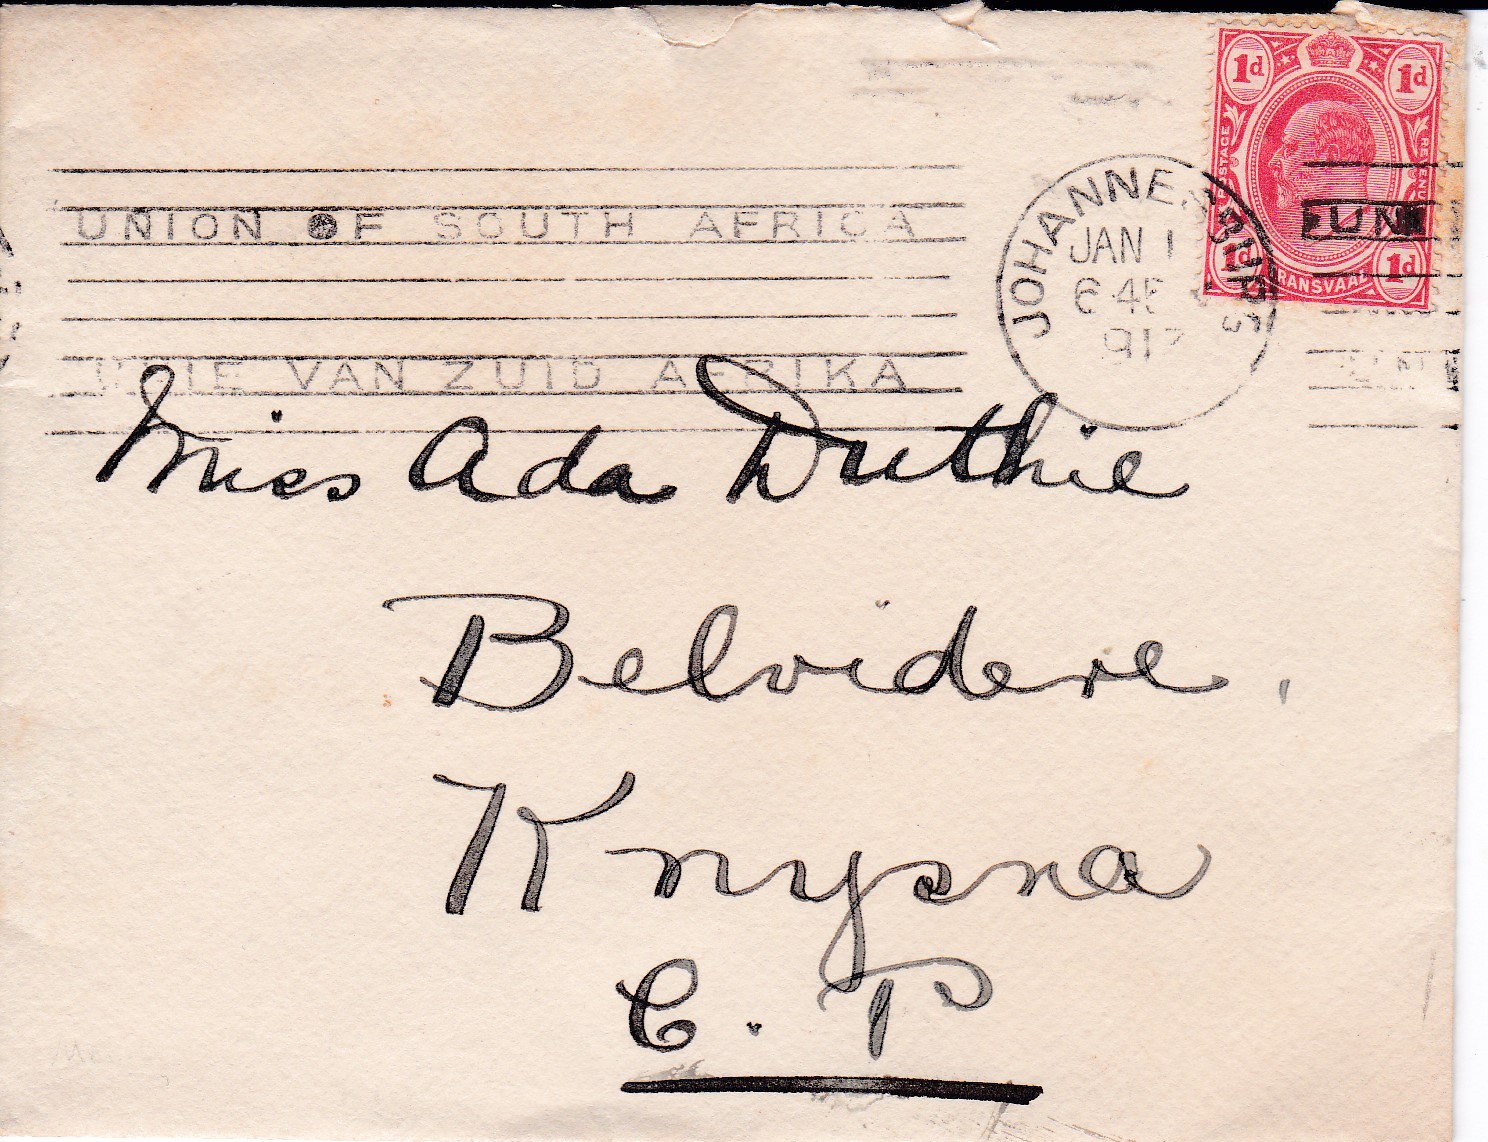 1d 1d
POSTAGE REVENUE
1d 1d
TRANSVAAL
JOHANNESBURG
JAN 1
6 45
UNION OF SOUTH AFRICA
UNIE VAN ZUID AFRIKA
UN
Miss Ada Duthie
Belvidere,
Knysna
C. P